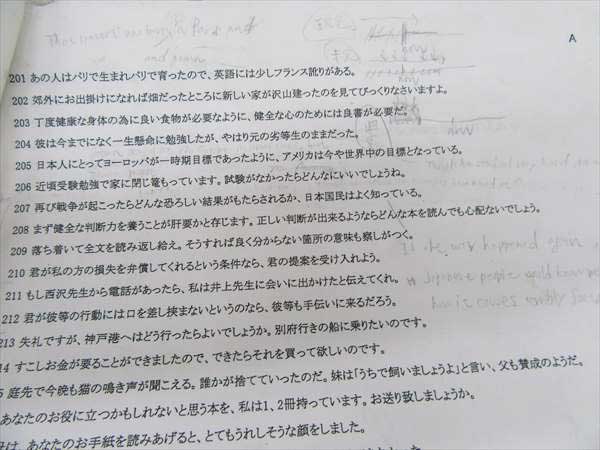 A
201 あの人はパリで生まれパリで育ったので、英語には少しフランス訛りがある。
202 郊外にお出掛けになれば畑だったところに新しい家が沢山建ったのを見てびっくりなさいますよ。
203 丁度健康な身体の為に良い食物が必要なように、健全な心のためには良書が必要だ。
204 彼は今までになく一生懸命に勉強したが、やはり元の劣等生のままだった。
205 日本人にとってヨーロッパが一時期目標であったように、アメリカは今や世界中の目標となっている。
206 近頃受験勉強で家に閉じ篭もっています。試験がなかったらどんなにいいでしょうね。
207 再び戦争が起こったらどんな恐ろしい結果がもたらされるか、日本国民はよく知っている。
208 まず健全な判断力を養うことが肝要かと存じます。正しい判断が出来るようならどんな本を読んでも心配ないでしょう。
209 落ち着いて全文を読み返し給え。そうすれば良く分からない箇所の意味も察しがつく。
210 君が私の方の損失を弁償してくれるという条件なら、君の提案を受け入れよう。
211 もし西沢先生から電話があったら、私は井上先生に会いに出かけたと伝えてくれ。
212 君が彼等の行動には口を差し挟まないというのなら、彼等も手伝いに来るだろう。
213 失礼ですが、神戸港へはどう行ったらよいでしょうか。別府行きの船に乗りたいのです。
14 すこしお金が要ることができましたので、できたらそれを買って欲しいのです。
5 庭先で今晩も猫の鳴き声が聞こえる。誰かが捨てていったのだ。妹は「うちで飼いましょうよ」と言い、父も賛成のようだ。
あなたのお役に立つかもしれないと思う本を、私は1、2冊持っています。お送り致しましょうか。
は、あなたのお手紙を読みあげると、とてもうれしそうな顔をしました。